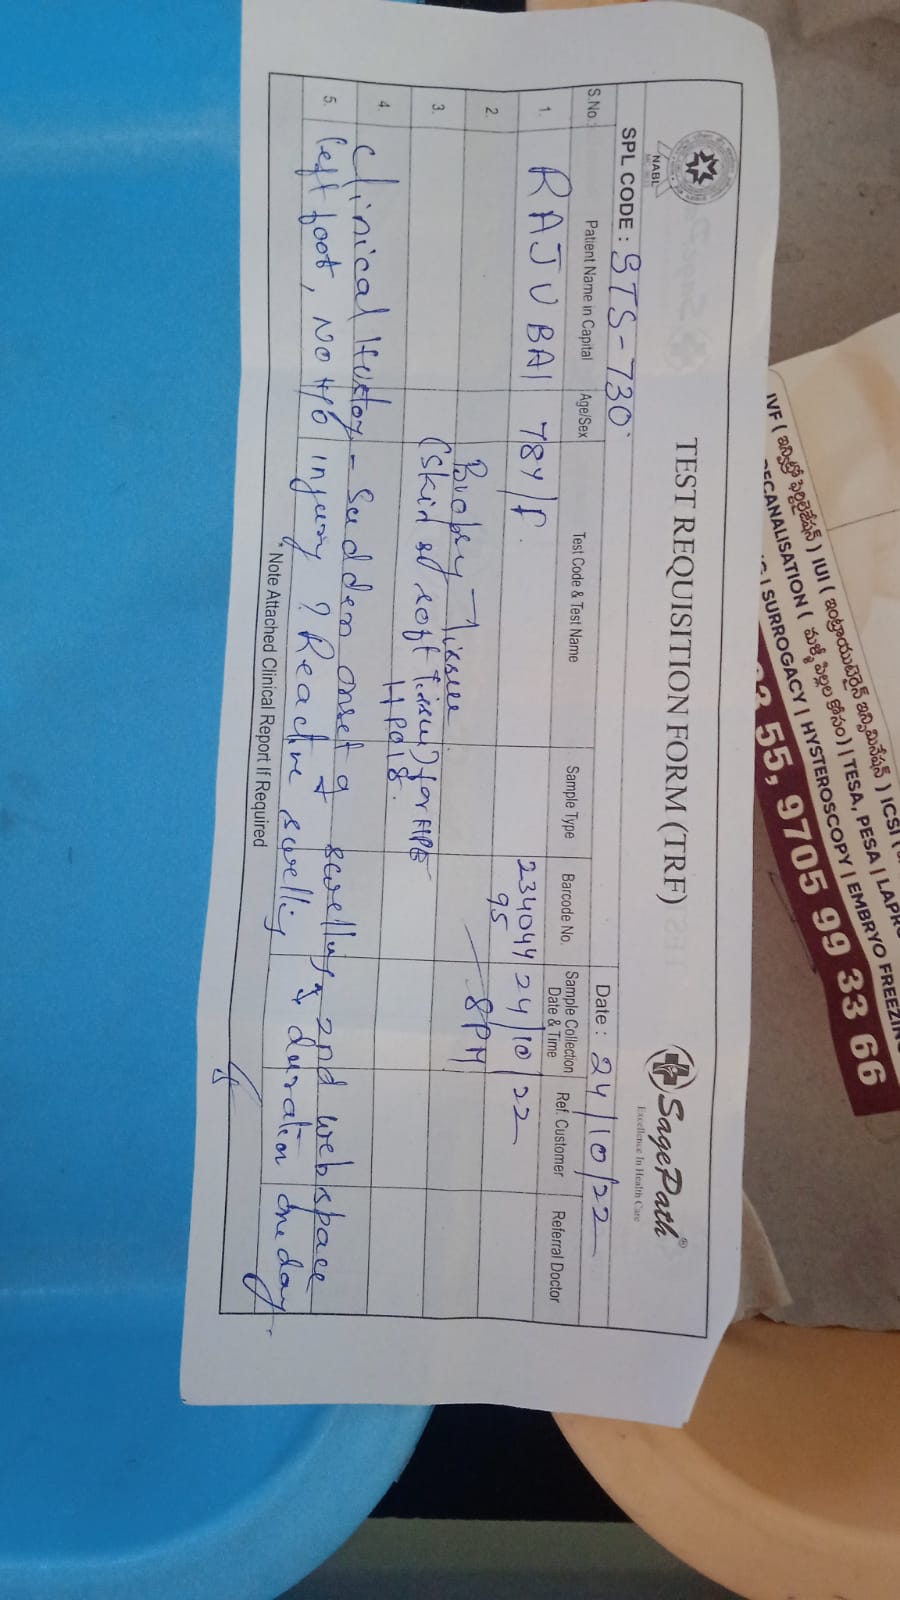 NABL
TEST REQUISITION FORM (TRF)
SagePath®
Excellence In Health Care
SPL CODE : STS-730
Date : 24/10/22
S.No. Patient Name in Capital Age/Sex Test Code & Test Name Sample Type Barcode No. Sample Collection Date & Time Ref. Customer Referral Doctor
1. RAJU BAI 78Y/F. 234044 24/10/22
95
2. Biopsy Tissue 8PM
3. (Skin & soft tissue) for HPE
4. HP018.
Clinical History - Sudden onset of swelling 2nd webspace
5. left foot, No H/O injury ? Reactive swelling duration one day.
*Note Attached Clinical Report If Required
IVF ( ఇన్విట్రో ఫెర్టిలైజేషన్ ) IUI ( ఇంట్రాయుటెరైన్ ఇన్సిమినేషన్ ) ICSI (
RECANALISATION ( మళ్ళీ పిల్లల కోసం) | TESA, PESA | LAPRO
| SURROGACY | HYSTEROSCOPY | EMBRYO FREEZIN
55, 9705 99 33 66